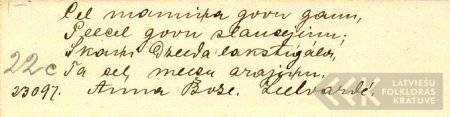 Cel mamiņa govu ganu,
Peecel govu slaucejiņu;
Skaņi dzeeda lakstigala,
Ta cel meesu arajiņu.
22c
23097. Anna Bose. Lielvardē.
LATVIEŠU
FOLKLORAS
KRĀTUVE